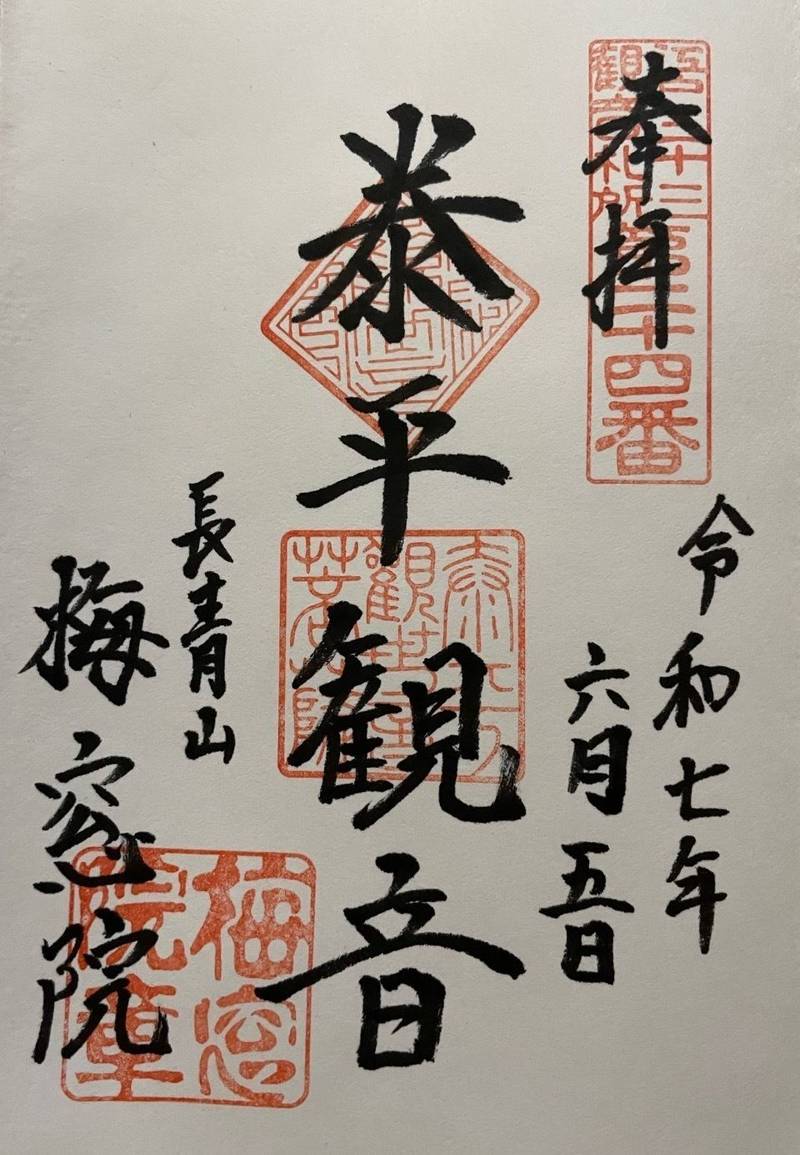 奉拝
江戸三十三
観音札所
第二十四番
令和七年
六月五日
泰平観音
長青山
梅窓院
梅窓
院章